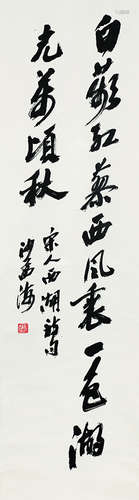 白蘋红蓼西风裏一色湖
光万頃秋
宋人西湖詩句
沙孟海